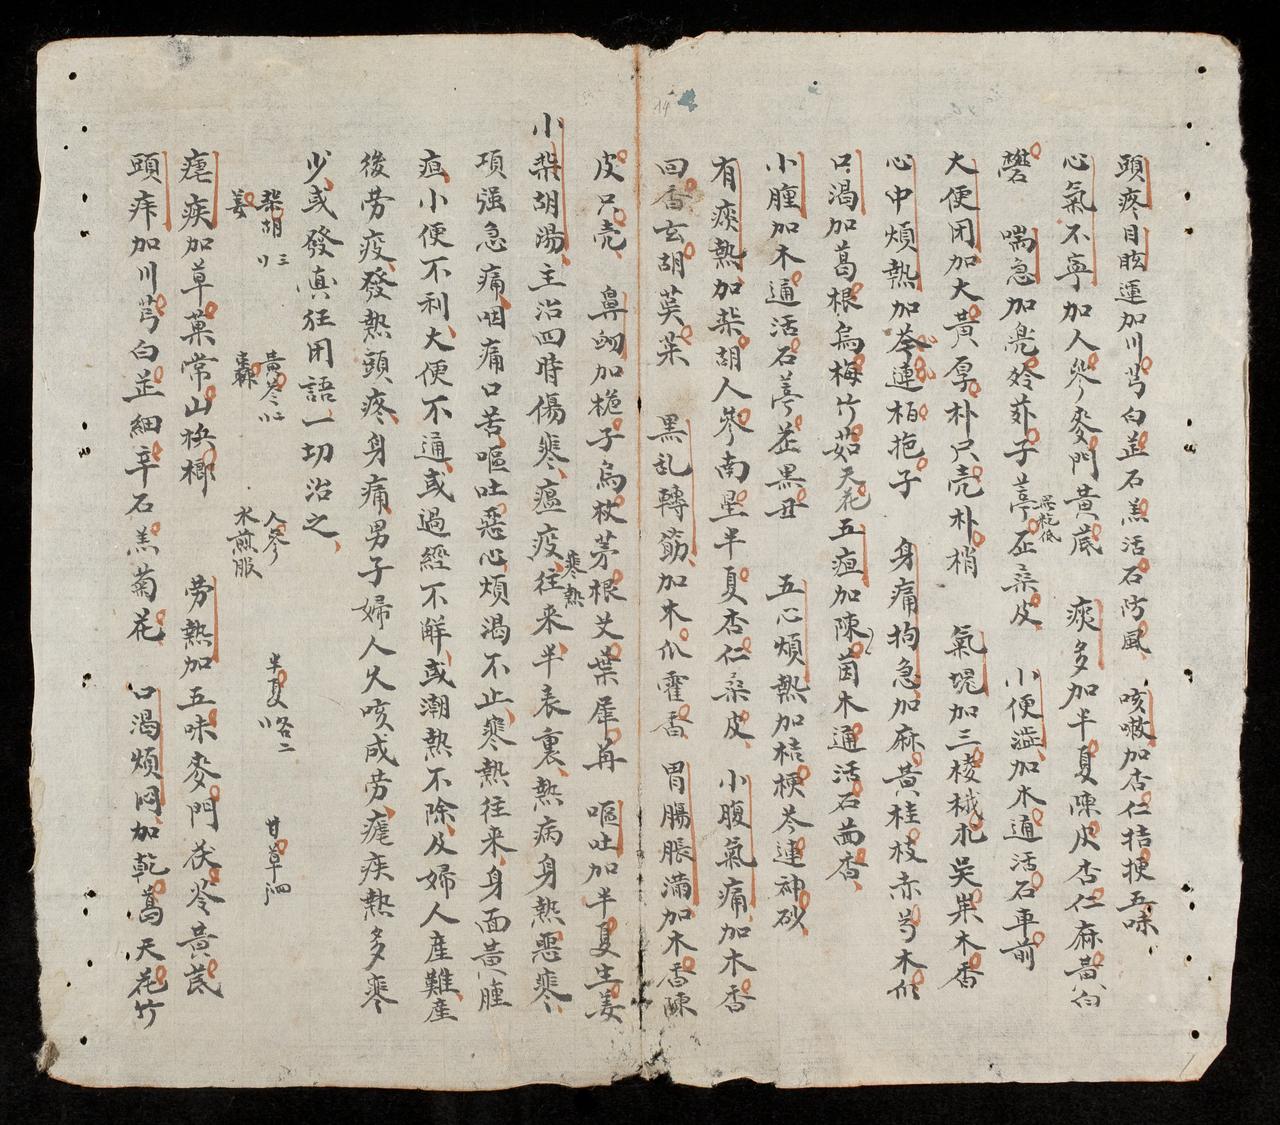 頭疼目眩運加川芎白芷石羔活石防風 咳嗽加杏仁桔梗五味
心氣不寧加人參麥門黃芪 痰多加半夏陳皮杏仁麻黃白
礬 喘急加兜鈴 子葶 桑皮 小便澁加木通活石車前
大便閉加大黃厚朴只壳朴梢 氣塊加三棱 朮吳茱木香
心中煩熱加芩連柏梔子 身痛拘急加麻黃桂枝赤芍木
口渴加葛根烏梅竹茹天花 五疸加陳茵木通活石茴香
小腫加木通活石葶 黑丑 五心煩熱加桔梗芩連神砂
有痰熱加柴胡人參南星半夏杏仁桑皮 小腹氣痛加木香
回香玄胡英茱 黑乱轉筋加木爪霍香 胃腸脹滿加木香陳
皮只壳 鼻衂加梔子烏枚茅根艾葉犀 嘔吐加半夏生姜
小柴胡湯主治四時傷寒瘟疫寒熱往来半表裏熱病身熱惡寒
項强急痛咽痛口苦嘔吐惡心煩渴不止寒熱往来身面黃腫
疸小便不利大便不通或過經不解或潮熱不除及婦人產難產
後劳疫發熱頭疼身痛男子婦人久咳成劳瘧疾熱多寒
少或發 狂 語一切治之
柴胡三 黃芩 人參 半夏 各二 甘草
姜 棗 水煎服
瘧疾加草菓常山梹榔 劳熱加五味麥門茯苓黃芪
頭疼加川芎白芷細辛石羔菊花 口渴煩悶加乾葛天花竹